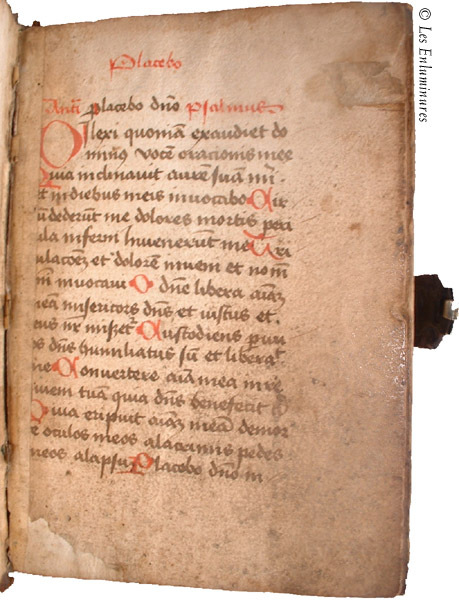 Placebo
Anti Placebo dno Psalmus
Dilexi quoniam exaudiet do
minus voce oracionis mee
Quia inclinavit aure suam m .
et in diebus meis invocabo Cir
cu dederut me dolores mortis peri
cula inferni Invenerut me Tri
bulacoez et dolore inveni et nom
ni invocavi O dne libera aiam
meam misericors dns et iustus et .
deus nr miset Custodiens parv
los dns humiliatus su et libera
me Convertere aia mea in re
quiem tua quia dns benefecit t
Quia eripuit aiam mea de mor
te oculos meos a lacrimis pedes
meos a lapsu Placebo dno in
© Les Enluminures